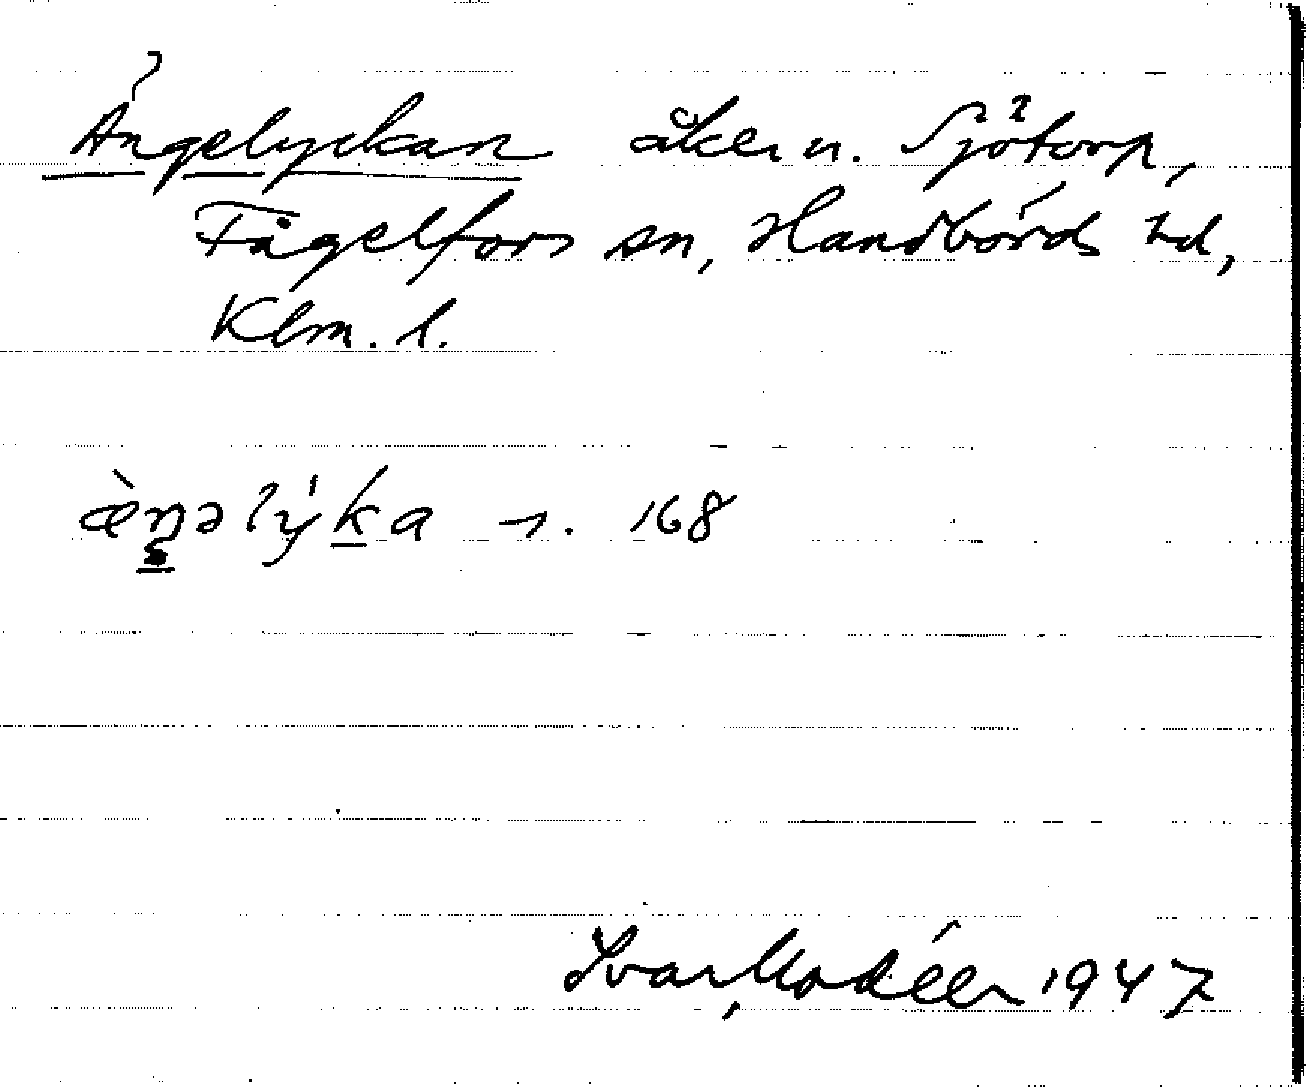 Ängelyckan åker u. Sjötorp,
Fågelfors sn, Handbörds hd,
Klm. l.
æ̀ŋəlýka s. 168
Ivar Modéer 1947